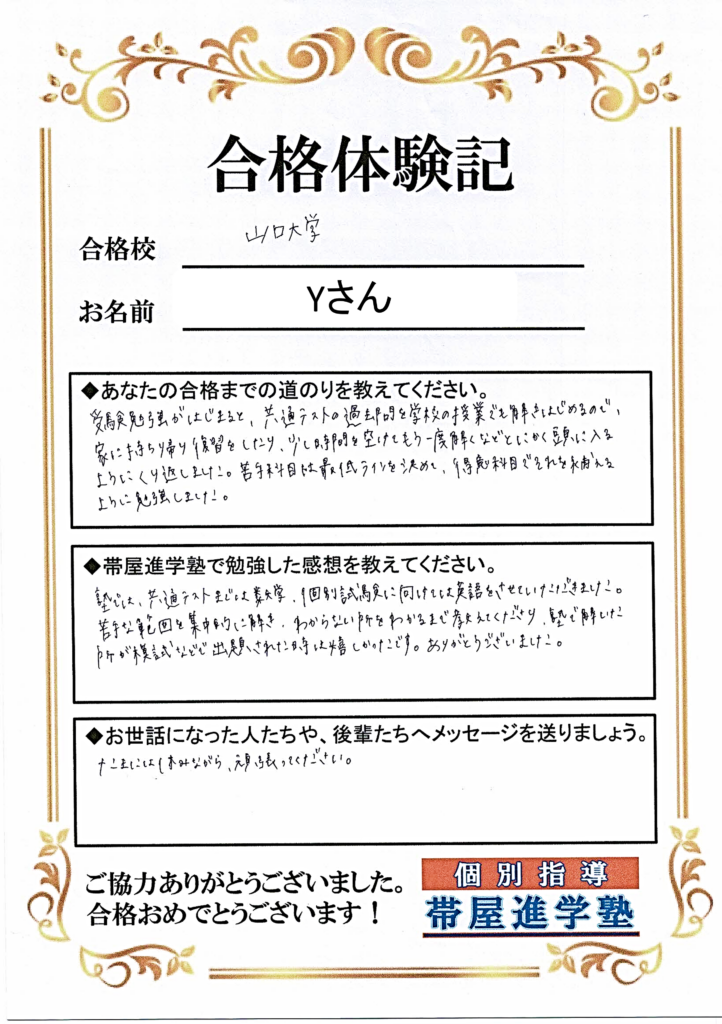 合格体験記
合格校 山口大学
お名前 Yさん
◆あなたの合格までの道のりを教えてください。
受験勉強がはじまると、共通テストの過去問を学校の授業でも解きはじめるので、
家に持ち帰り復習をしたり、少し時間を空けてもう一度解くなどとにかく頭に入る
ようにくり返しました。苦手科目は最低ラインを決めて、得意科目でそれを補える
ように勉強しました。
◆帯屋進学塾で勉強した感想を教えてください。
塾では、共通テストまでは数学、個別試験に向けては英語をさせていただきました。
苦手な範囲を集中的に解き、わからない所をわかるまで教えてくださり、塾で解いた
所が模試などで出題された時は嬉しかったです。ありがとうございました。
◆お世話になった人たちや、後輩たちへメッセージを送りましょう。
たまには休みながら、頑張ってください。
ご協力ありがとうございました。
合格おめでとうございます！
個別指導
帯屋進学塾